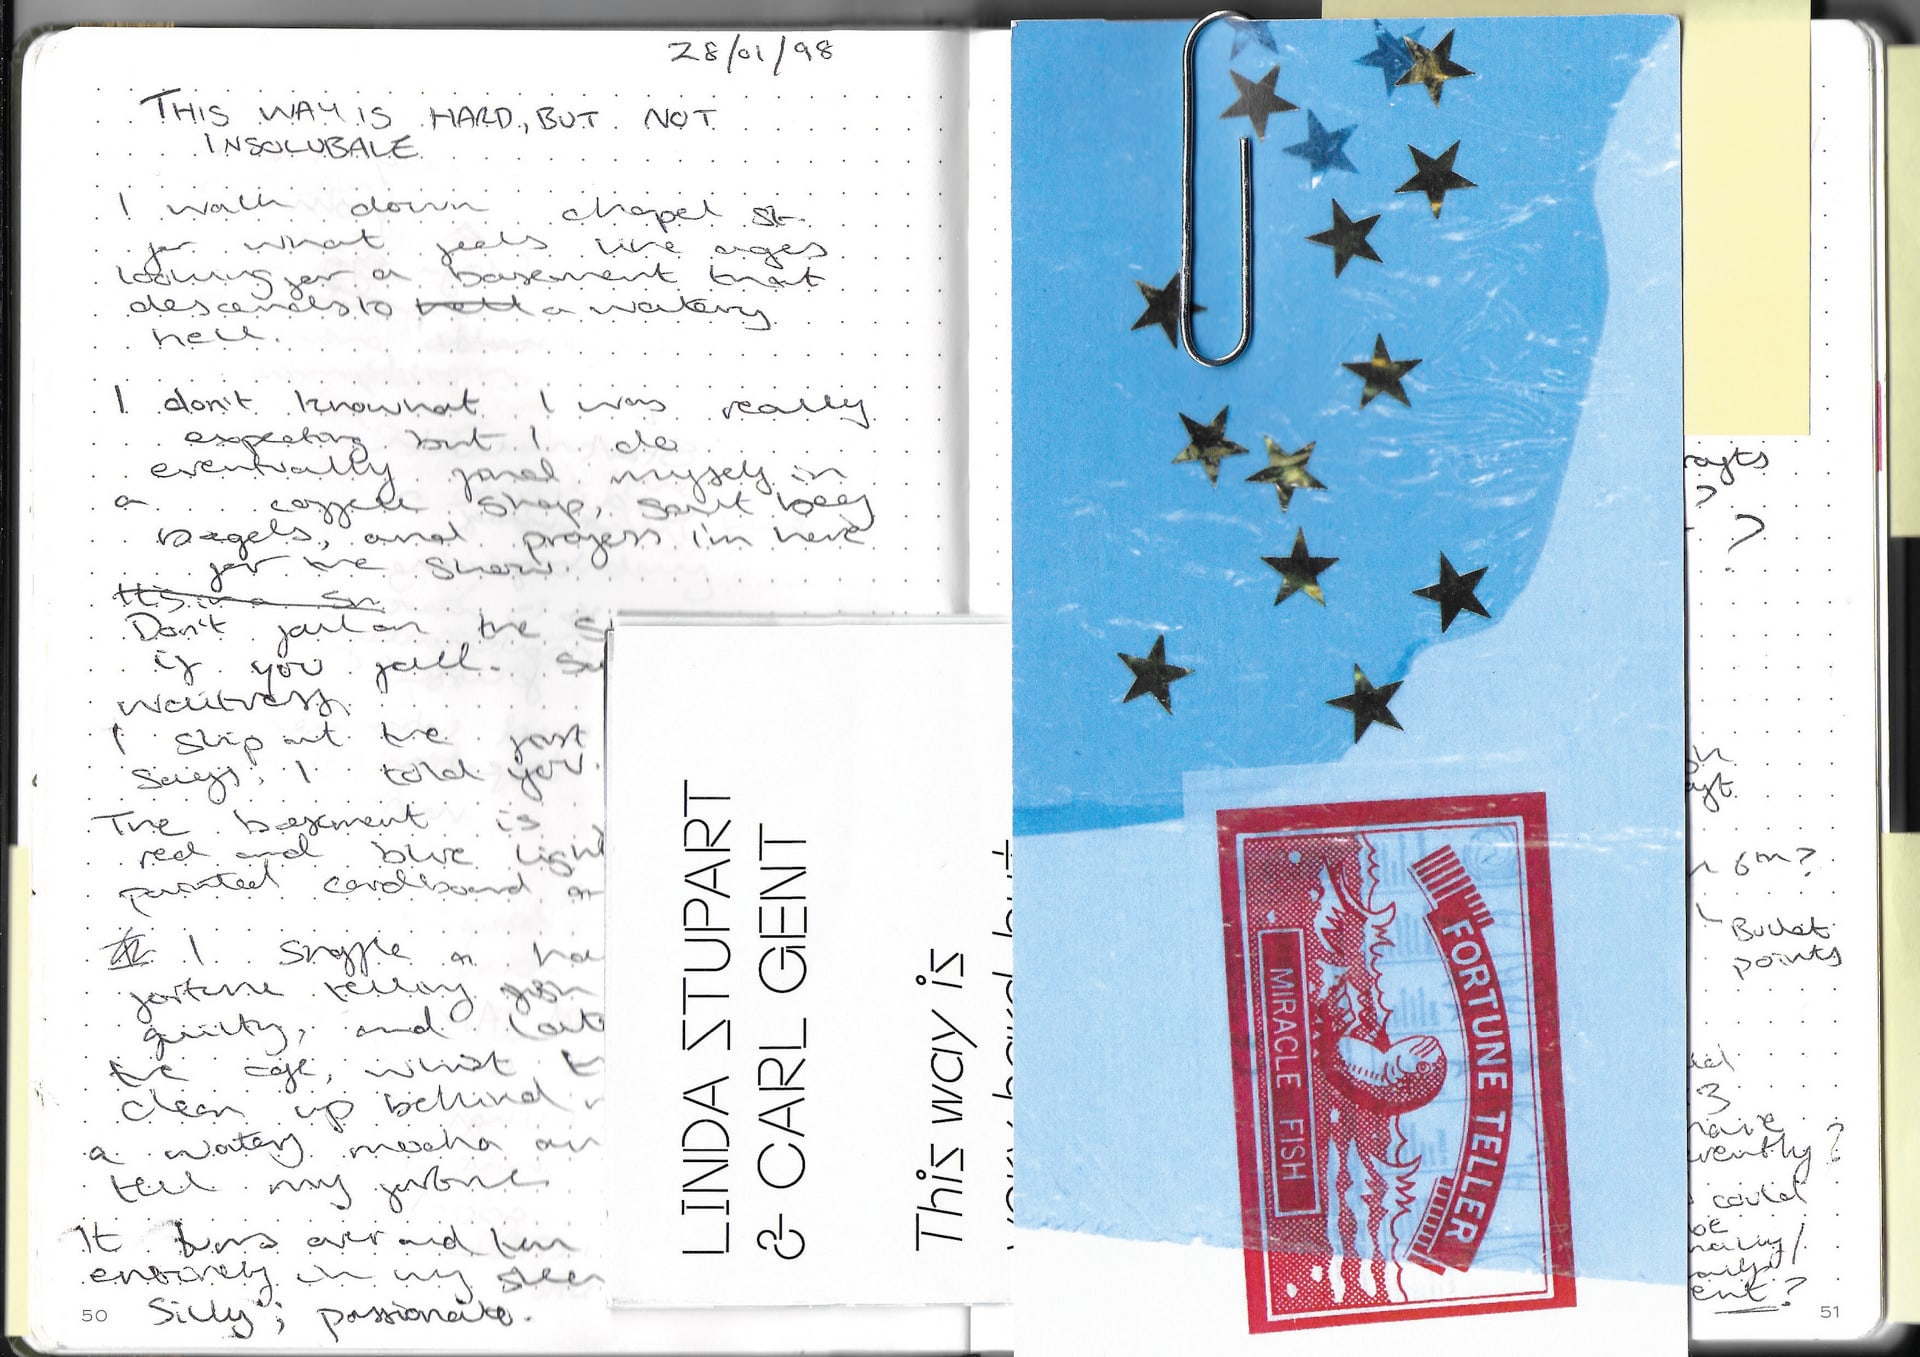 28/01/98
THIS WAY IS HARD, BUT NOT
INSOLUBALE
I walk down chapel st.
for what feels like ages
looking for a basement that
descends to a watery
hell.
I don't knowhat I was really
expecting but I do
eventually find myself in
a coffee shop, salt beef
bagels, and profess i'm here
for the show.
Its in a
Don't fall on the S
if you fall. Su
waitress.
I slip at the first
says, I told you.
The basement is
red and blue light
painted cardboard
I snaffle a ha
fortune telling fish
guilty, and late
the cafe, whilst t
clean up behind
a watery mocha an
tell my fortune
It turns over and
entirely in my
Silly; passionate.
50
LINDA STUPART
& CARL GENT
This way is
very hard but
FORTUNE TELLER
MIRACLE FISH
?
?
6m?
Bullet
points
3
have
?
could
be
ent?
51